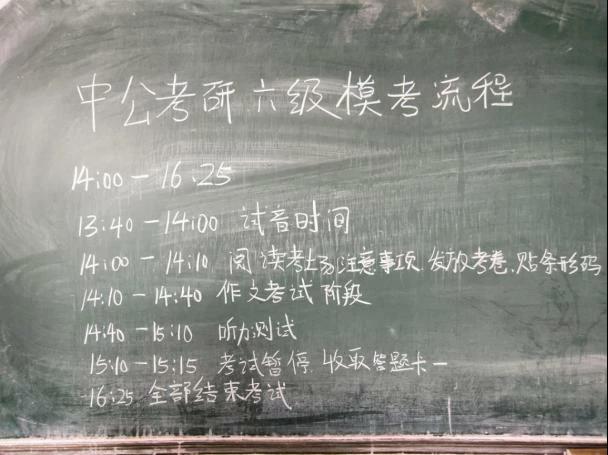 中公考研六级模考流程
14:00－16:25
13:40－14:00 试音时间
14:00－14:10 阅读考场注意事项、发放考卷、贴条形码
14:10－14:40 作文考试阶段
14:40－15:10 听力测试
15:10－15:15 考试暂停 收取答题卡一
16:25 全部结束考试